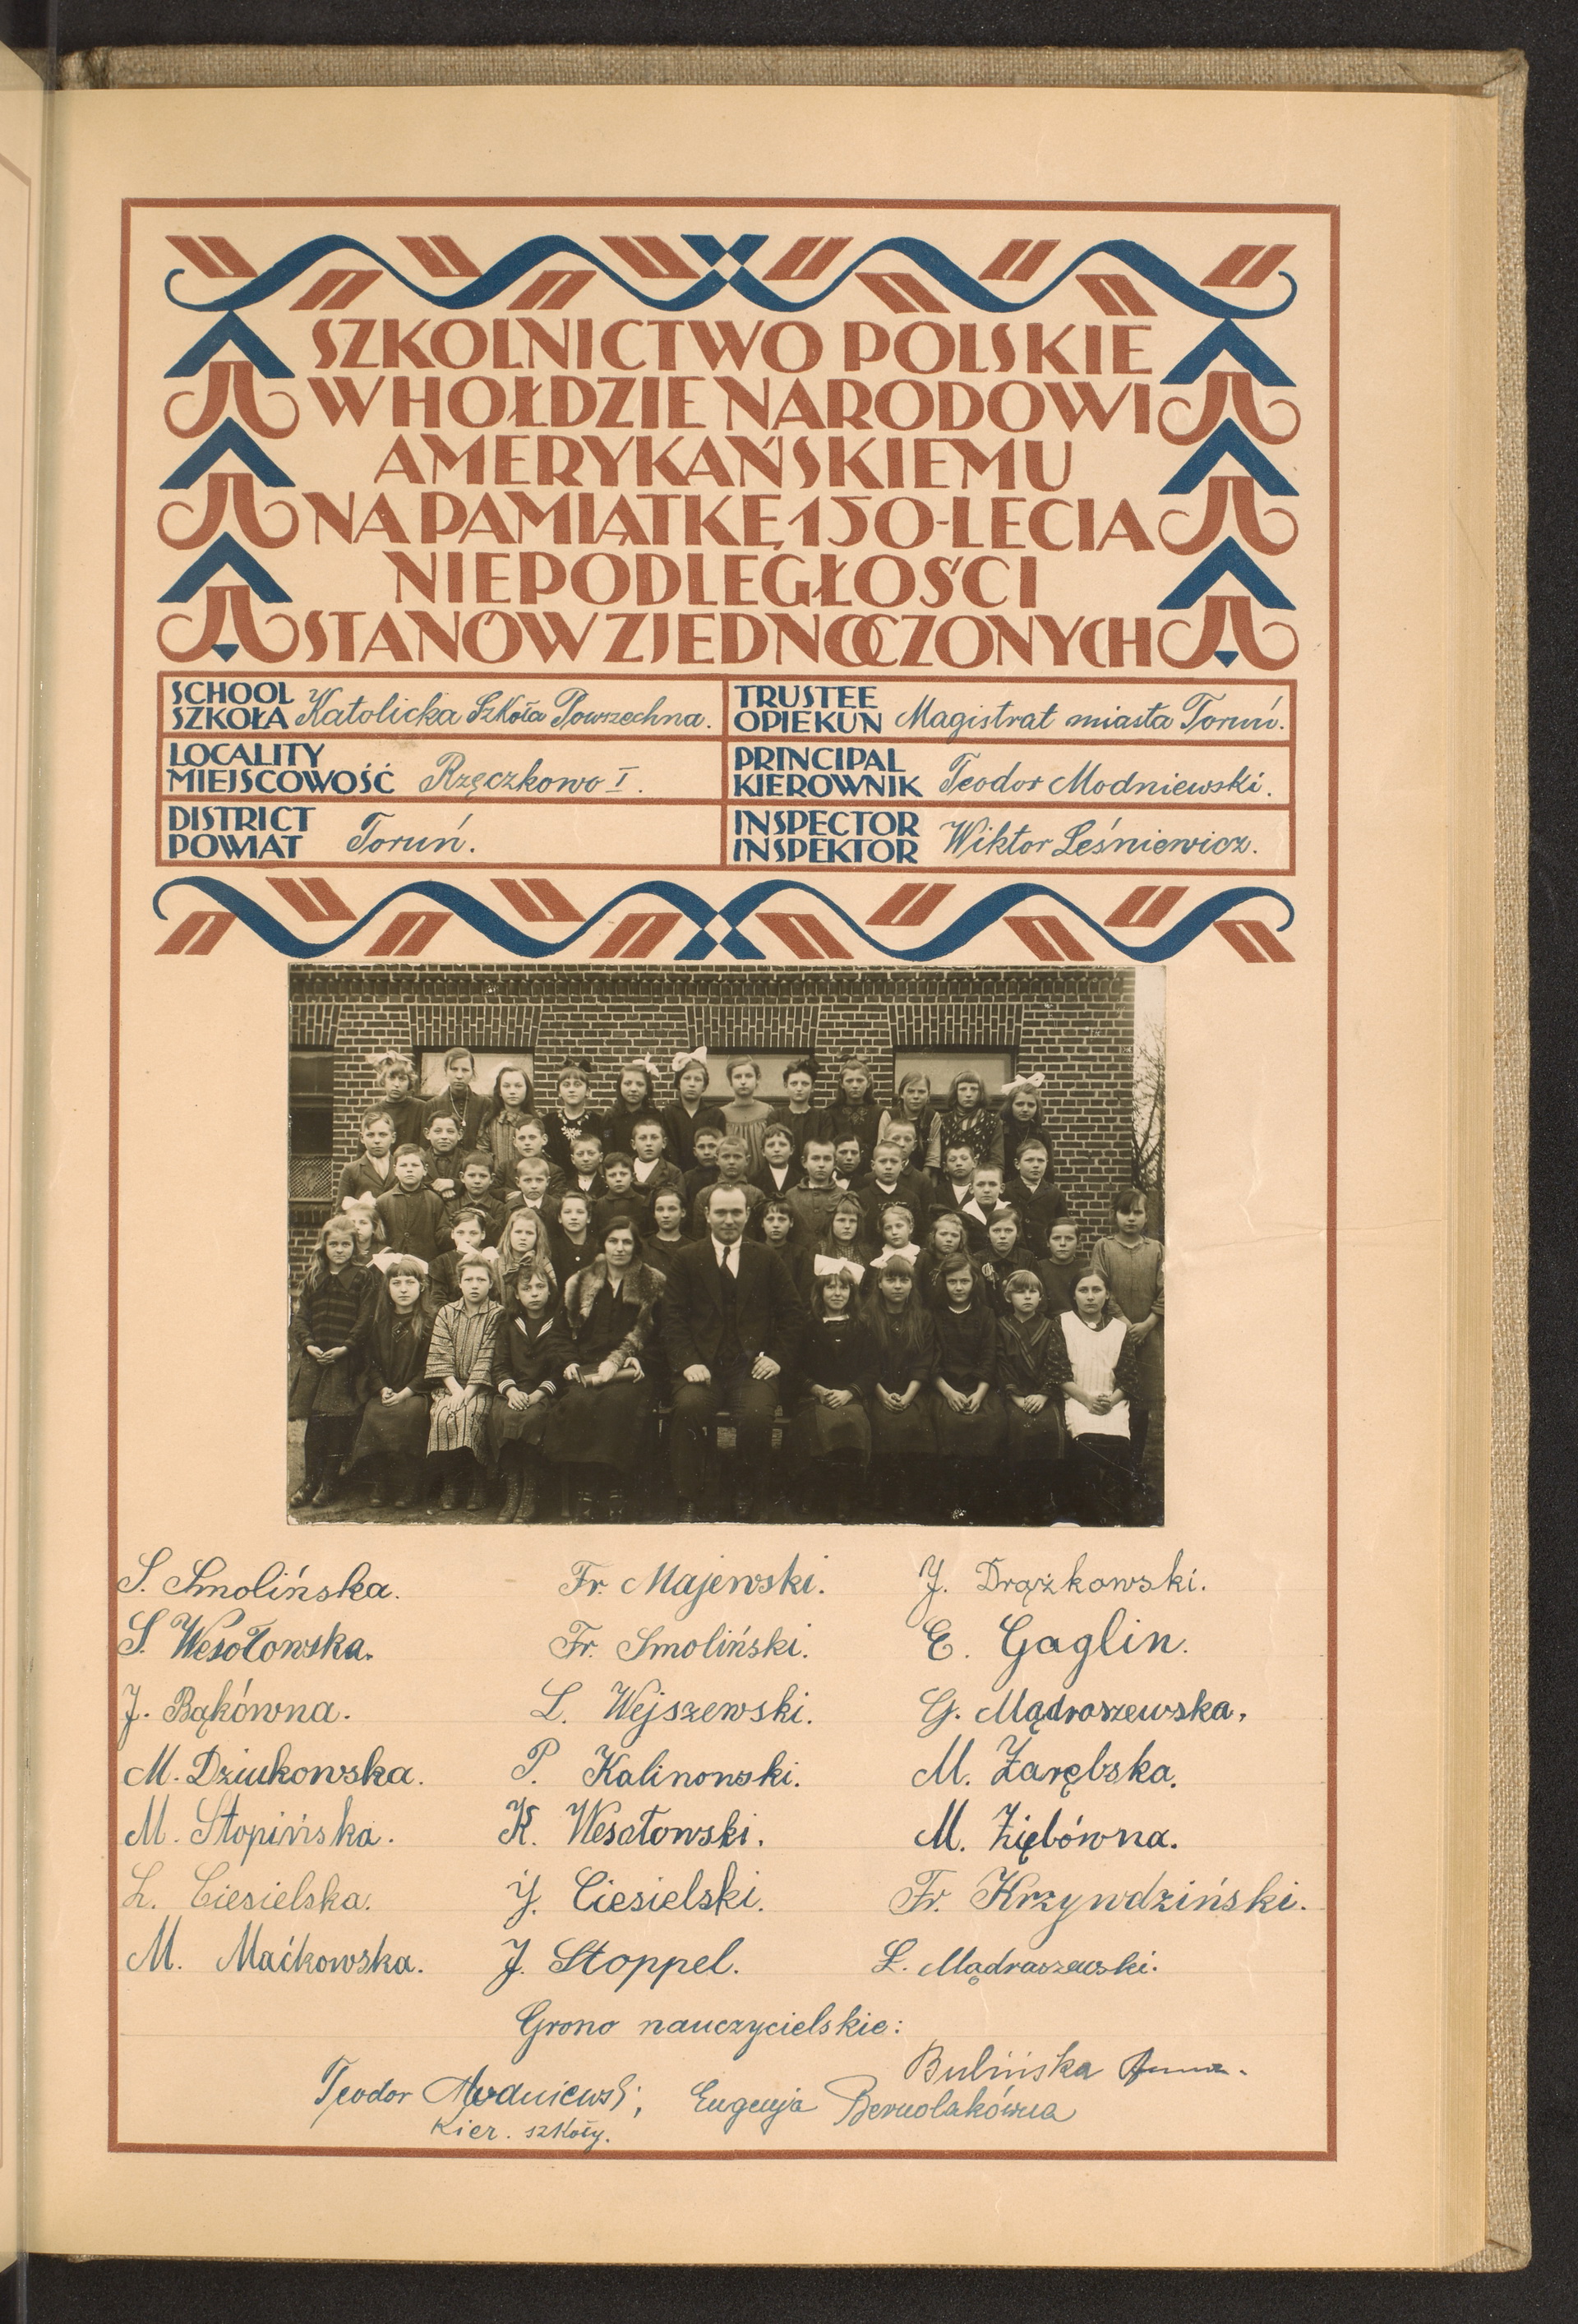 SZKOLNICTWO POLSKIE
W HOŁDZIE NARODOWI
AMERYKAŃSKIEMU
NA PAMIĄTKĘ 150-LECIA
NIEPODLEGŁOŚCI
STANÓW ZJEDNOCZONYCH
SCHOOL
SZKOŁA Katolicka Szkoła Powszechna.
TRUSTEE
OPIEKUN Magistrat miasta Toruń.
LOCALITY
MIEJSCOWOŚĆ Rzęczkowo I.
PRINCIPAL
KIEROWNIK Teodor Modniewski.
DISTRICT
POWIAT Toruń.
INSPECTOR
INSPEKTOR Wiktor Leśniewicz.
S. Smolińska. Fr. Majewski. J. Drążkowski.
S. Wesołowska. Fr. Smoliński. E. Gaglin.
J. Bąkówna. L. Wejszewski. G. Mądraszewska.
M. Dziukowska. P. Kalinowski. M. Zarębska.
M. Stopińska. K. Wesołowski. M. Ziębówna.
L. Ciesielska. J. Ciesielski. Fr. Krzywdziński.
M. Maćkowska. J. Stoppel. L. Mądraszewski.
Grono nauczycielskie:
Bulińska Anna.
Teodor Modniewski; Eugenja Bernolakówna
Kier. szkoły.